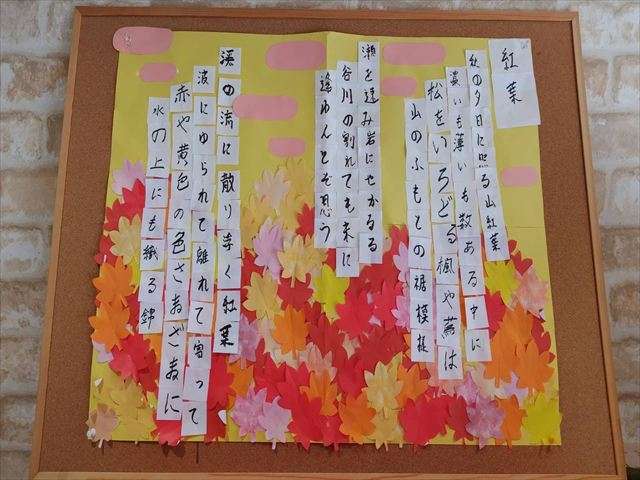 紅葉
秋の夕日に照る山紅葉
濃いも薄いも数ある中に
松をいろどる楓や蔦は
山のふもとの裾模様
瀬を速み岩にせかるる
谷川の割れても末に
逢わんとぞ思う
渓の流に散り浮く紅葉
波にゆられて離れて寄って
赤や黄色の色さまざまに
水の上にも織る錦